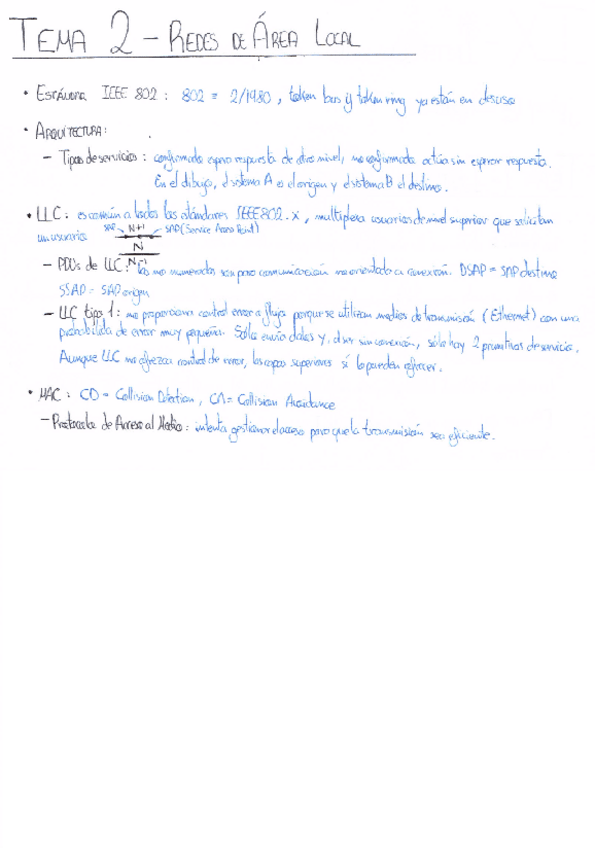 TEMA 2 - REDES DE ÁREA LOCAL
• ESTÁNDAR IEEE 802 : 802 = 2/1980 , token bus y token ring ya están en desuso
• ARQUITECTURA:
- Tipos de servicios : confirmado espera respuesta de otro nivel, no confirmado actúa sin esperar respuesta.
En el dibujo, el sistema A es el origen y el sistema B el destino.
• LLC : es común a todos los estándares IEEE 802.X , multiplexa usuarios de nivel superior que solicitan
un usuario SAP N+1 SAP (Service Access Point)
N
N-1
- PDUs de LLC : los no numerados son para comunicación no orientada a conexión. DSAP = SAP destino
SSAP = SAP origen
- LLC tipo 1 : no proporciona control error o flujo porque se utilizan medios de transmisión (Ethernet) con una
probabilidad de error muy pequeña. Sólo envía datos y, al ser sin conexión, sólo hay 2 primitivas de servicio.
Aunque LLC no ofrezca control de error, las capas superiores sí lo pueden ofrecer.
• MAC : CD = Collision Detection , CA = Collision Avoidance
- Protocolo de Acceso al Medio : intenta gestionar el acceso para que la transmisión sea eficiente.